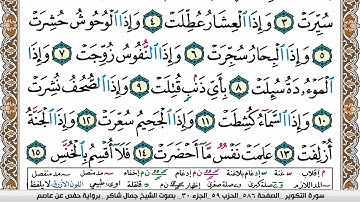 سُيِّرَتْ ٣ وَإِذَا ٱلْعِشَارُ عُطِّلَتْ ٤ وَإِذَا ٱلْوُحُوشُ حُشِرَتْ
٥ وَإِذَا ٱلْبِحَارُ سُجِّرَتْ ٦ وَإِذَا ٱلنُّفُوسُ زُوِّجَتْ ٧ وَإِذَا
ٱلْمَوْءُۥدَةُ سُئِلَتْ ٨ بِأَىِّ ذَنۢبٍ قُتِلَتْ ٩ وَإِذَا ٱلصُّحُفُ نُشِرَتْ
١٠ وَإِذَا ٱلسَّمَآءُ كُشِطَتْ ١١ وَإِذَا ٱلْجَحِيمُ سُعِّرَتْ ١٢ وَإِذَا ٱلْجَنَّةُ
أُزْلِفَتْ ١٣ عَلِمَتْ نَفْسٌ مَّآ أَحْضَرَتْ ١٤ فَلَآ أُقْسِمُ بِٱلْخُنَّسِ
سورة التكوير الصفحة ٥٨٦ الحزب ٥٩ الجزء ٣٠ بصوت الشيخ جمال شاكر برواية حفص عن عاصم